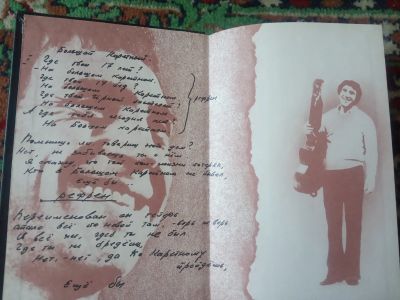 Большой Каретный
Где твои 17 лет?
- На большом каретном
Где твои 17 бед?
На большом каретном
Где твой чёрный пистолет?
На большом каретном
А где тебя сегодня нет?
На большом каретном
рефрен
Помнишь ли товарищ этот дом?
Нет, не забываешь ты о нём
Я скажу, что тот полжизни потерял,
Кто в Большом Каретном не бывал,
ещё бы...
рефрен
Переименован он теперь
Стало всё по новой там, верь не верь
И всё же, где б ты ни был
Где ты ни бредёшь,
Нет-нет, да по Каретному
пройдёшь,
Ещё бы